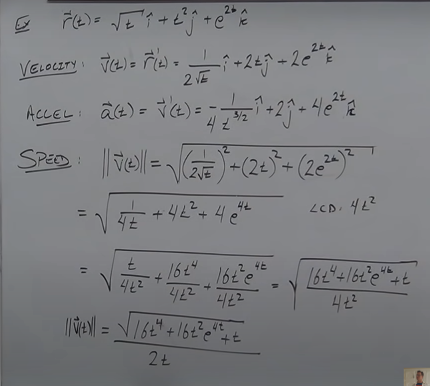 Ex r⃗(t) = √t î + t² ĵ + e^(2t) k̂
VELOCITY: v⃗(t) = r⃗'(t) = 1/(2√t) î + 2t ĵ + 2e^(2t) k̂
ACCEL: a⃗(t) = v⃗'(t) = -1/(4t^(3/2)) î + 2ĵ + 4e^(2t) k̂
SPEED: ||v⃗(t)|| = √((1/(2√t))² + (2t)² + (2e^(2t))²)
= √(1/(4t) + 4t² + 4e^(4t)) LCD: 4t²
= √(t/(4t²) + 16t⁴/(4t²) + 16t²e^(4t)/(4t²)) = √((16t⁴+16t²e^(4t)+t)/(4t²))
||v⃗(t)|| = √(16t⁴+16t²e^(4t)+t)/(2t)